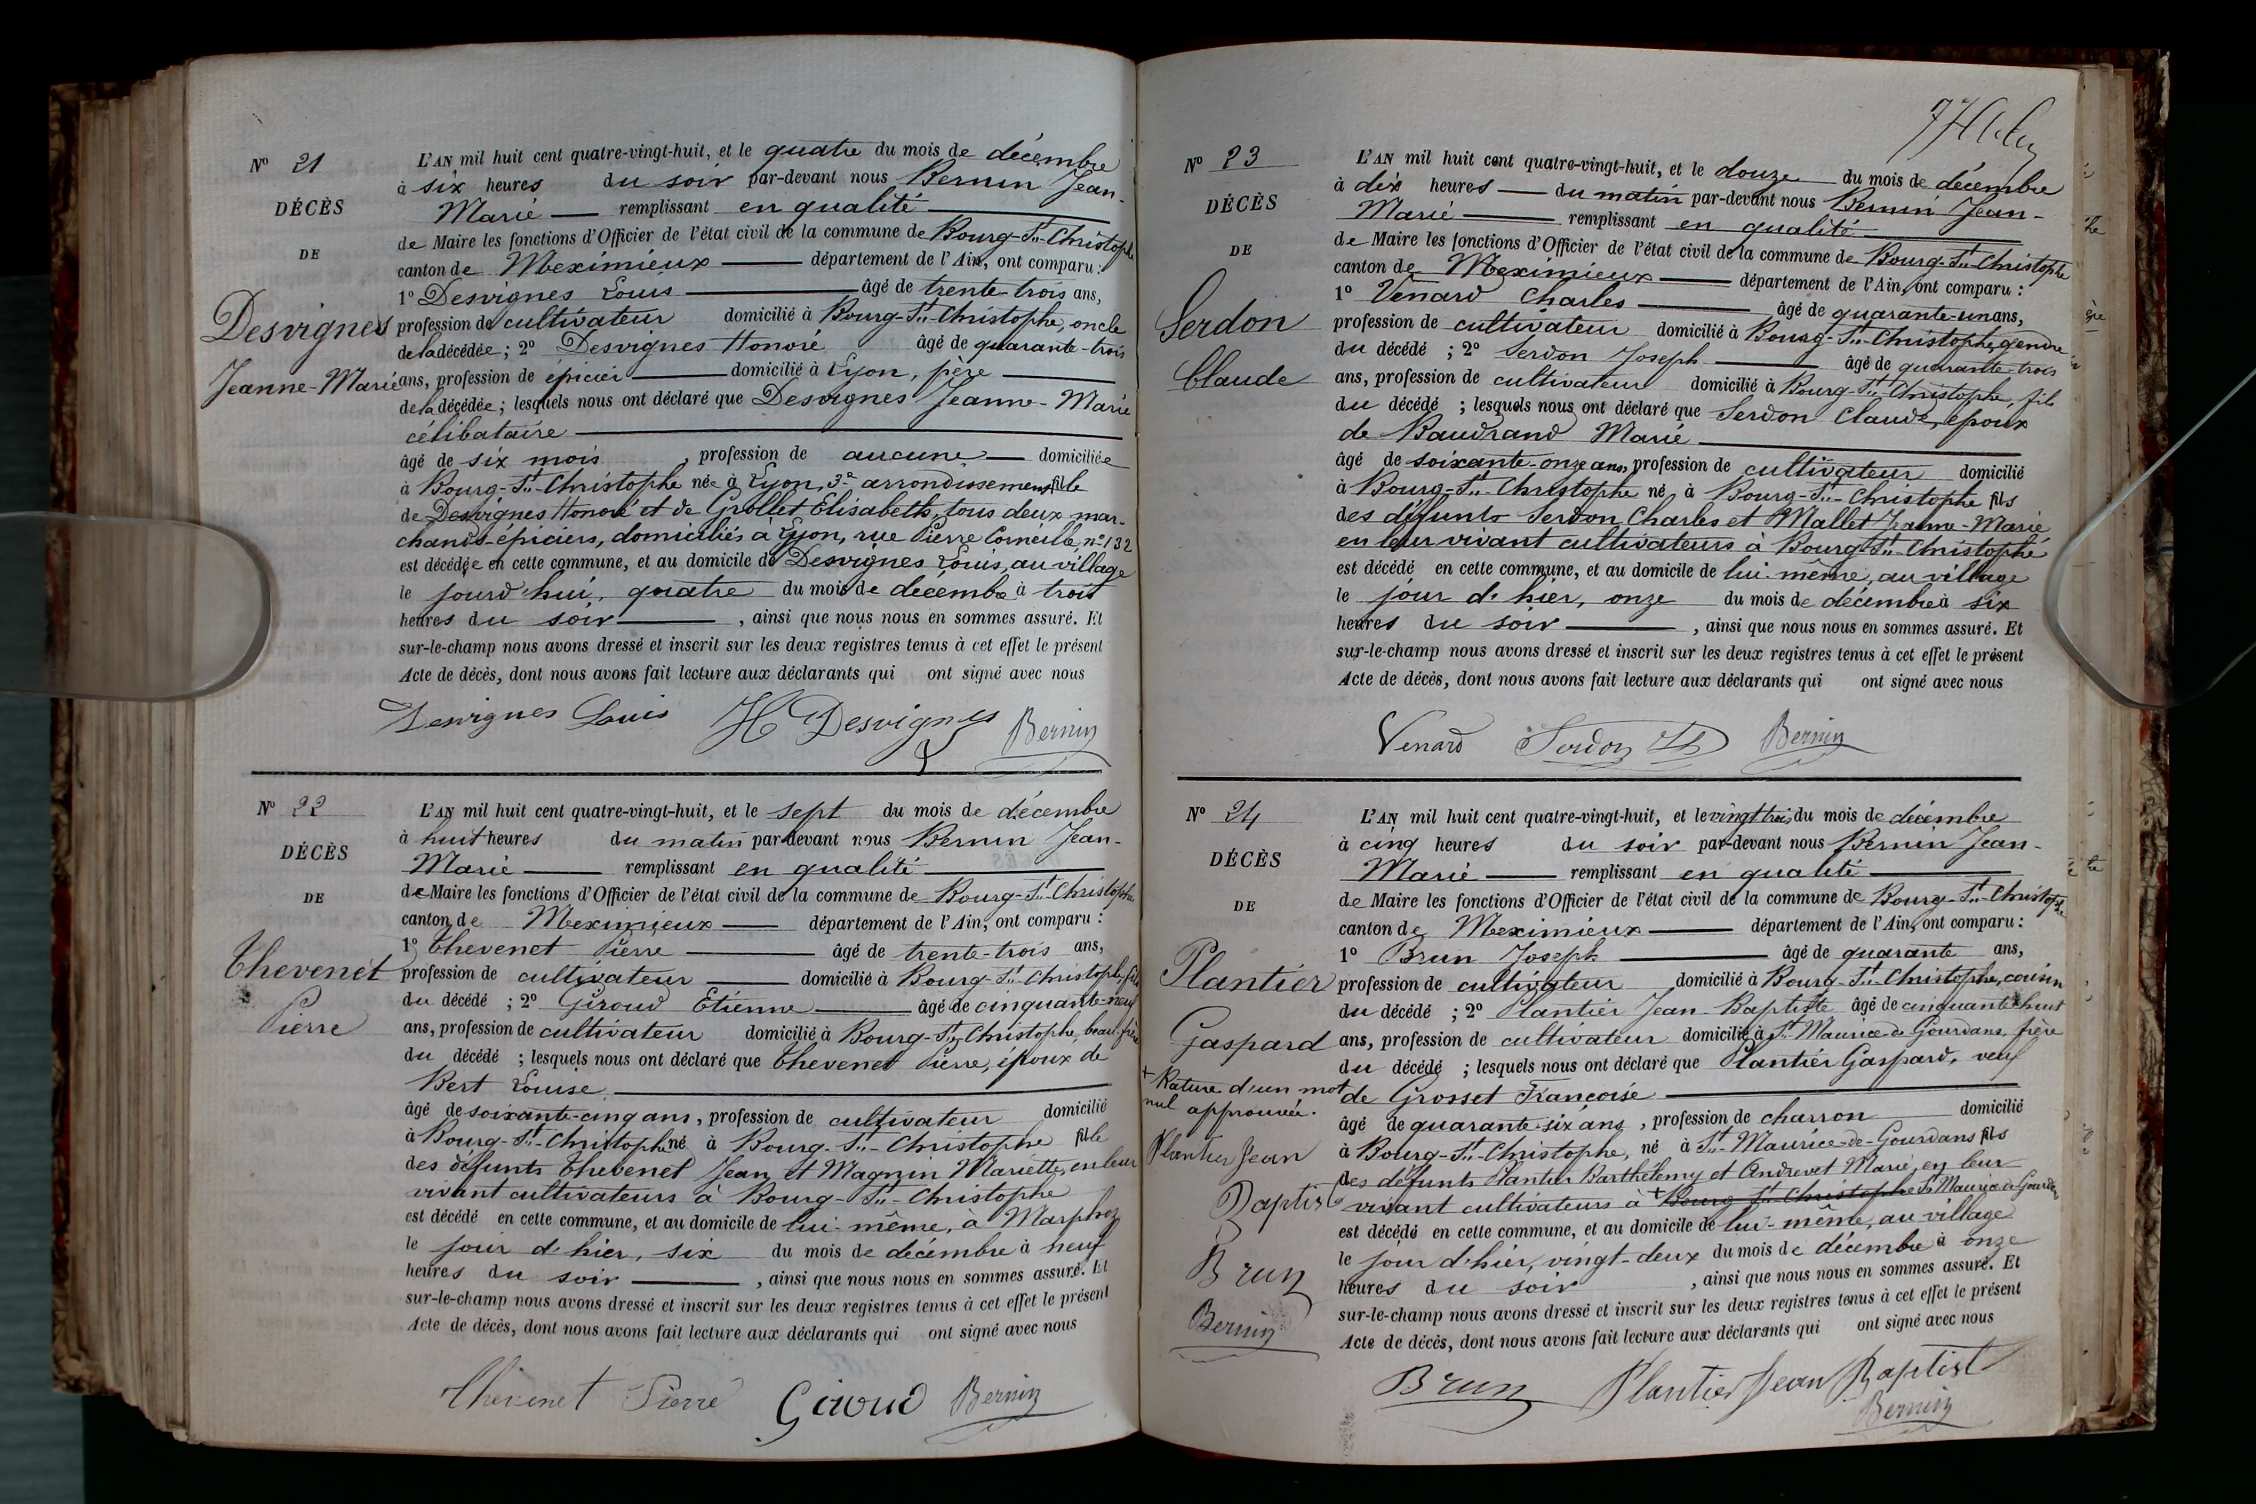 N° 21
DÉCÈS
DE
Desvignes
Jeanne-Marie
L'AN mil huit cent quatre-vingt-huit, et le quatre du mois de décembre
à six heures du soir par-devant nous Bernin Jean-
Marie remplissant en qualité
de Maire les fonctions d'Officier de l'état civil de la commune de Bourg-St-Christophe
canton de Meximieux département de l'Ain, ont comparu :
1° Desvignes Louis âgé de trente-trois ans,
profession de cultivateur domicilié à Bourg-St-Christophe, oncle
de la décédée ; 2° Desvignes Honoré âgé de quarante-trois
ans, profession de épicier domicilié à Lyon, père
de la décédée ; lesquels nous ont déclaré que Desvignes Jeanne-Marie
célibataire
âgé de six mois, profession de aucune domiciliée
à Bourg-St-Christophe née à Lyon, 3e arrondissement fille
de Desvignes Honoré et de Grollet Elisabeth, tous deux mar-
chands-épiciers, domiciliés à Lyon, rue Pierre Corneille, n° 132
est décédée en cette commune, et au domicile de Desvignes Louis, au village
le jourd'hui, quatre du mois de décembre à trois
heures du soir, ainsi que nous nous en sommes assuré. Et
sur-le-champ nous avons dressé et inscrit sur les deux registres tenus à cet effet le présent
Acte de décès, dont nous avons fait lecture aux déclarants qui ont signé avec nous
Desvignes Louis H Desvignes Bernin
N° 22
DÉCÈS
DE
Thevenet
Pierre
L'AN mil huit cent quatre-vingt-huit, et le sept du mois de décembre
à huit heures du matin par-devant nous Bernin Jean-
Marie remplissant en qualité
de Maire les fonctions d'Officier de l'état civil de la commune de Bourg-St-Christophe
canton de Meximieux département de l'Ain, ont comparu :
1° Thevenet Pierre âgé de trente-trois ans,
profession de cultivateur domicilié à Bourg-St-Christophe, fils
du décédé ; 2° Giroud Etienne âgé de cinquante-neuf
ans, profession de cultivateur domicilié à Bourg-St-Christophe, beau-frère
du décédé ; lesquels nous ont déclaré que Thevenet Pierre, époux de
Bert Louise
âgé de soixante-cinq ans, profession de cultivateur domicilié
à Bourg-St-Christophe né à Bourg-St-Christophe fils
des défunts Thevenet Jean et Magnin Mariette, en leur
vivant cultivateurs à Bourg-St-Christophe
est décédé en cette commune, et au domicile de lui-même, à Marphoz
le jour d'hier, six du mois de décembre à neuf
heures du soir, ainsi que nous nous en sommes assuré. Et
sur-le-champ nous avons dressé et inscrit sur les deux registres tenus à cet effet le présent
Acte de décès, dont nous avons fait lecture aux déclarants qui ont signé avec nous
Thevenet Pierre Giroud Bernin
N° 23
DÉCÈS
DE
Serdon
Claude
L'AN mil huit cent quatre-vingt-huit, et le douze du mois de décembre
à dix heures du matin par-devant nous Bernin Jean-
Marie remplissant en qualité
de Maire les fonctions d'Officier de l'état civil de la commune de Bourg-St-Christophe
canton de Meximieux département de l'Ain, ont comparu :
1° Venard Charles âgé de quarante-un ans,
profession de cultivateur domicilié à Bourg-St-Christophe, gendre
du décédé ; 2° Serdon Joseph âgé de quarante-trois
ans, profession de cultivateur domicilié à Bourg-St-Christophe, fils
du décédé ; lesquels nous ont déclaré que Serdon Claude, époux
de Baudrand Marie
âgé de soixante-onze ans, profession de cultivateur domicilié
à Bourg-St-Christophe né à Bourg-St-Christophe fils
des défunts Serdon Charles et Mallet Jeanne-Marie
en leur vivant cultivateurs à Bourg-St-Christophe
est décédé en cette commune, et au domicile de lui-même, au village
le jour d'hier, onze du mois de décembre à six
heures du soir, ainsi que nous nous en sommes assuré. Et
sur-le-champ nous avons dressé et inscrit sur les deux registres tenus à cet effet le présent
Acte de décès, dont nous avons fait lecture aux déclarants qui ont signé avec nous
Venard Serdon Bernin
N° 24
DÉCÈS
DE
Plantier
Gaspard
+ Rature d'un mot
nul approuvée.
Plantier Jean
Baptist
Brun
Bernin
L'AN mil huit cent quatre-vingt-huit, et le vingt trois du mois de décembre
à cinq heures du soir par-devant nous Bernin Jean-
Marie remplissant en qualité
de Maire les fonctions d'Officier de l'état civil de la commune de Bourg-St-Christophe
canton de Meximieux département de l'Ain, ont comparu :
1° Brun Joseph âgé de quarante ans,
profession de cultivateur domicilié à Bourg-St-Christophe, cousin
du décédé ; 2° Plantier Jean-Baptiste âgé de cinquante-huit
ans, profession de cultivateur domicilié à St Maurice-de-Gourdans, frère
du décédé ; lesquels nous ont déclaré que Plantier Gaspard, veuf
de Grosset Françoise
âgé de quarante-six ans, profession de charron domicilié
à Bourg-St-Christophe, né à St-Maurice-de-Gourdans fils
des défunts Plantier Barthélemy et Andrevet Marie, en leur
vivant cultivateurs à + Bourg St Christophe St Maurice de Gourdans
est décédé en cette commune, et au domicile de lui-même, au village
le jour d'hier, vingt-deux du mois de décembre à onze
heures du soir, ainsi que nous nous en sommes assuré. Et
sur-le-champ nous avons dressé et inscrit sur les deux registres tenus à cet effet le présent
Acte de décès, dont nous avons fait lecture aux déclarants qui ont signé avec nous
Brun Plantier Jean Baptist
Bernin